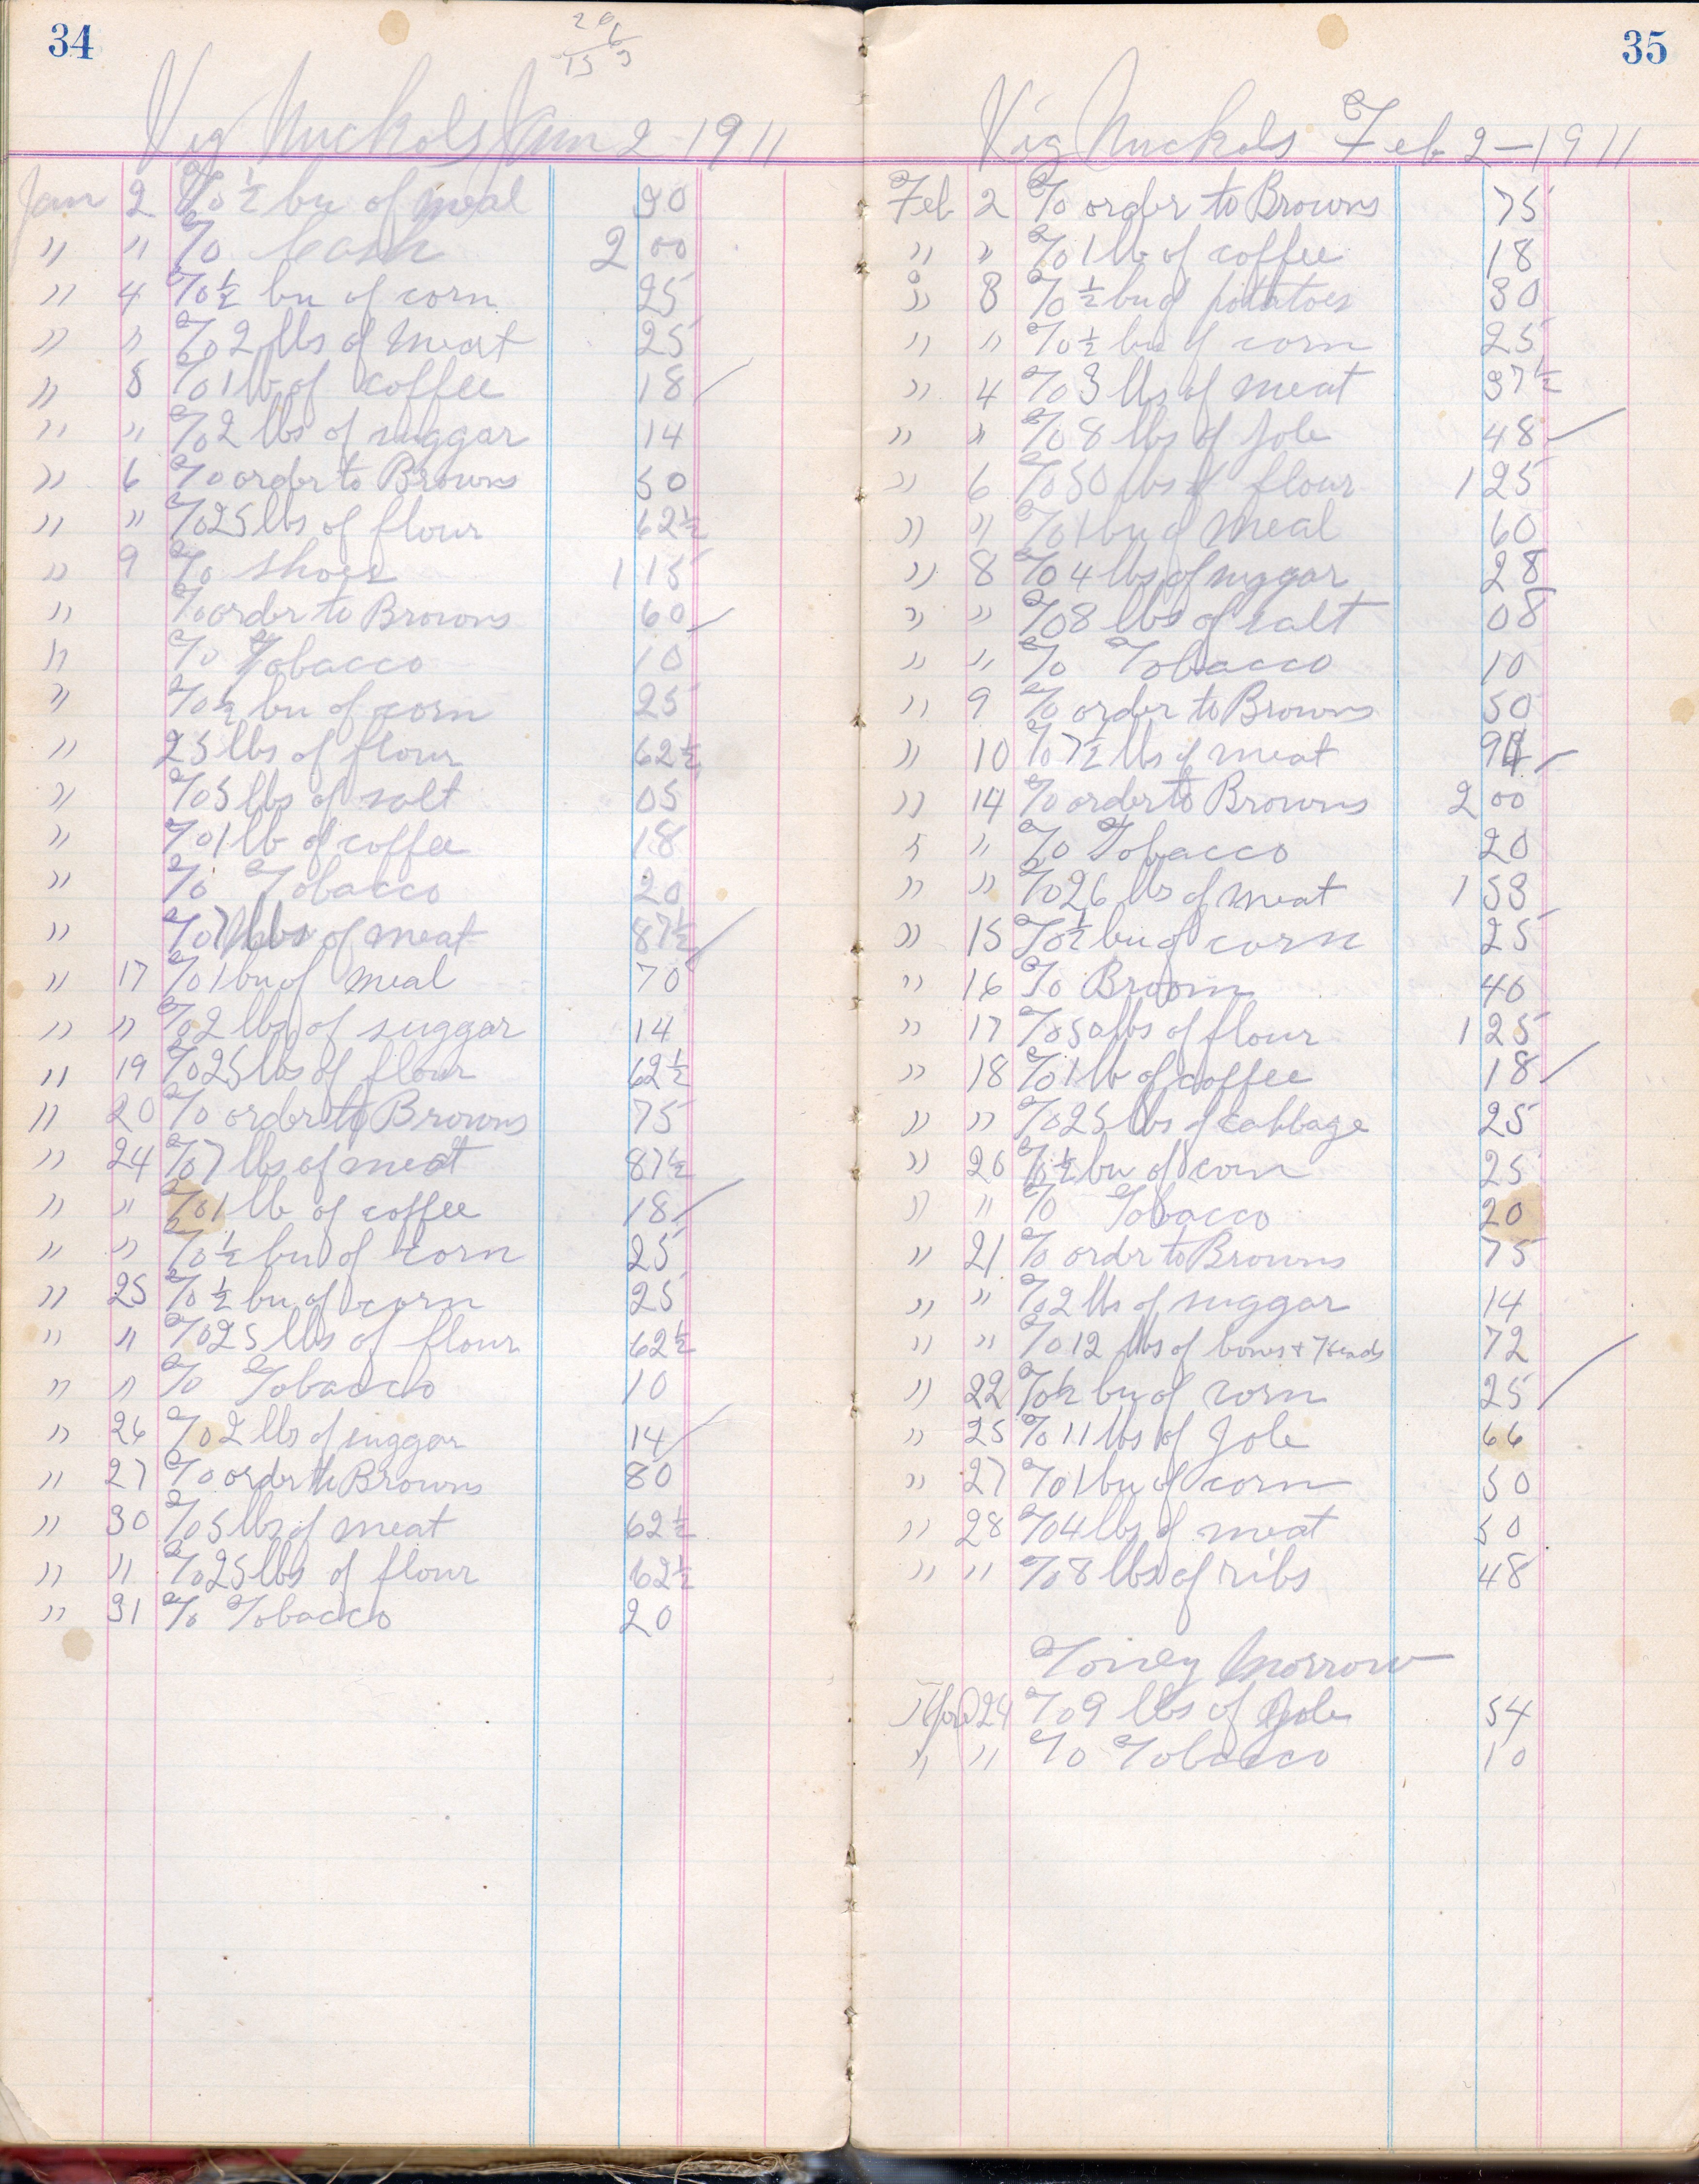 34
26
6
15 9
Vig Nuckols Jan 2 1911
Jan 2 To ½ bu of meal 30
" " To Cash 2 00
" 4 To ½ bu of corn 25
" " To 2 lbs of meat 25
" 5 To 1 lb of coffee 18
" " To 2 lbs of suggar 14
" 6 To order to Browns 50
" " To 25 lbs of flour 62½
" 9 To shoes 1 15
" To order to Browns 60
" To Tobacco 10
" To ½ bu of corn 25
" 25 lbs of flour 62½
" To 5 lbs of salt 05
" To 1 lb of coffee 18
" To Tobacco 20
" To 7 lbs of meat 87½
" 17 To 1 bu of meal 70
" " To 2 lbs of suggar 14
" 19 To 25 lbs of flour 62½
" 20 To order to Browns 75
" 24 To 7 lbs of meat 87½
" " To 1 lb of coffee 18
" " To ½ bu of corn 25
" 25 To ½ bu of corn 25
" " To 25 lbs of flour 62½
" " To Tobacco 10
" 26 To 2 lbs of suggar 14
" 27 To order to Browns 80
" 30 To 5 lbs of meat 62½
" " To 25 lbs of flour 62½
" 31 To Tobacco 20
35
Vig Nuckols Feb 2-1911
Feb 2 To order to Browns 75
" " To 1 lb of coffee 18
" 3 To ½ bu of potatoes 30
" " To ½ bu of corn 25
" 4 To 3 lbs of meat 37½
" " To 8 lbs of Jole 48
" 6 To 50 lbs of flour 1 25
" " To 1 bu of meal 60
" 8 To 4 lbs of suggar 28
" " To 8 lbs of salt 08
" " To Tobacco 10
" 9 To order to Browns 50
" 10 To 7½ lbs of meat 94
" 14 To order to Browns 2 00
" " To Tobacco 20
" " To 26 lbs of meat 1 58
" 15 To ½ bu of corn 25
" 16 To Broom 40
" 17 To 50 lbs of flour 1 25
" 18 To 1 lb of coffee 18
" " To 25 lbs of cabbage 25
" 20 To ½ bu of corn 25
" " To Tobacco 20
" 21 To order to Browns 75
" " To 2 lbs of suggar 14
" " To 12 lbs of bones & Heads 72
" 22 To ½ bu of corn 25
" 25 To 11 lbs of Jole 66
" 27 To 1 bu of corn 50
" 28 To 4 lbs of meat 50
" " To 8 lbs of ribs 48
Toney Morrow
24 To 9 lbs of Jole 54
" " To Tobacco 10